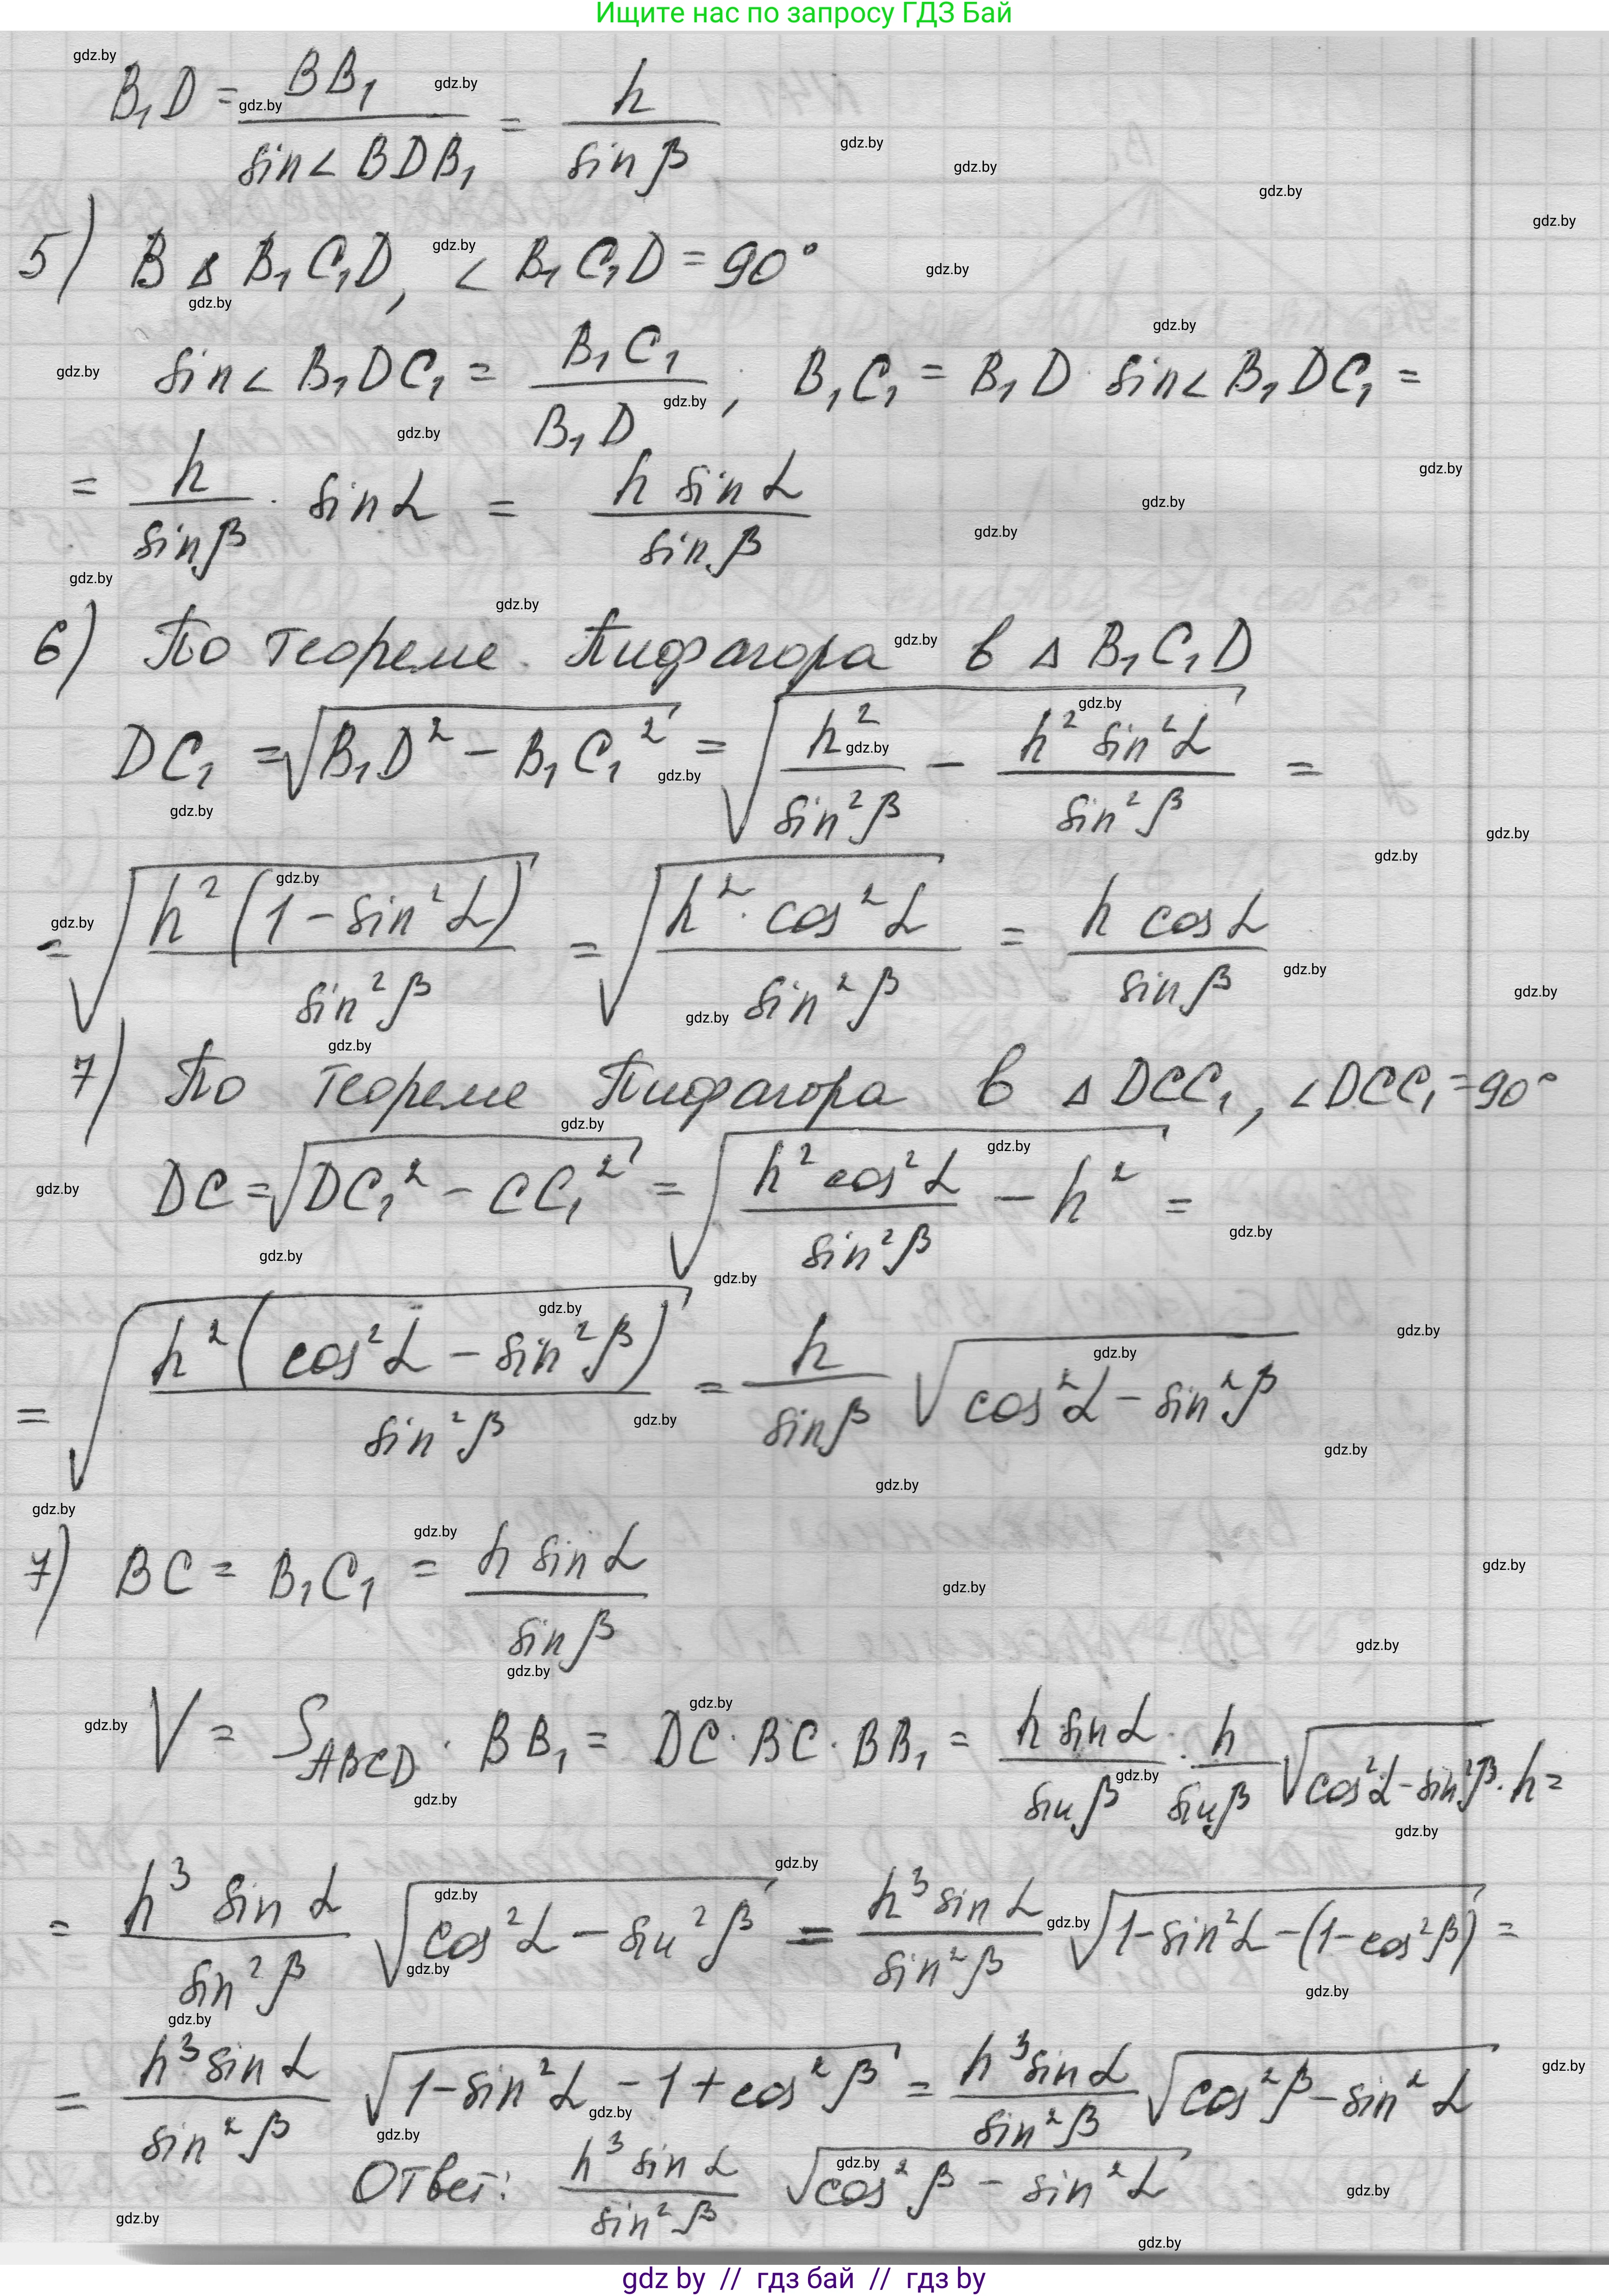 Ищите нас по запросу ГДЗ Бай
B₁D = BB₁ / sin∠BDB₁ = h / sinβ
5) В △ B₁C₁D, ∠B₁C₁D = 90°
sin∠B₁DC₁ = B₁C₁ / B₁D ; B₁C₁ = B₁D · sin∠B₁DC₁ =
= h / sinβ · sinα = h sinα / sinβ
6) По теореме Пифагора в △ B₁C₁D
DC₁ = √(B₁D² − B₁C₁²) = √(h² / sin²β − h² sin²α / sin²β) =
= √(h²(1 − sin²α) / sin²β) = √(h² · cos²α / sin²β) = h cosα / sinβ
7) По теореме Пифагора в △ DCC₁, ∠DCC₁ = 90°
DC = √(DC₁² − CC₁²) = √(h² cos²α / sin²β − h²) =
= √(h²(cos²α − sin²β) / sin²β) = h / sinβ √(cos²α − sin²β)
7) BC = B₁C₁ = h sinα / sinβ
V = S_ABCD · BB₁ = DC · BC · BB₁ = h sinα / sinβ · h / sinβ √(cos²α − sin²β) · h =
= h³ sinα / sin²β √(cos²α − sin²β) = h³ sinα / sin²β √(1 − sin²α − (1 − cos²β)) =
= h³ sinα / sin²β √(1 − sin²α − 1 + cos²β) = h³ sinα / sin²β √(cos²β − sin²α)
Ответ: h³ sinα / sin²β √(cos²β − sin²α)
gdz by // гдз бай // гдз by